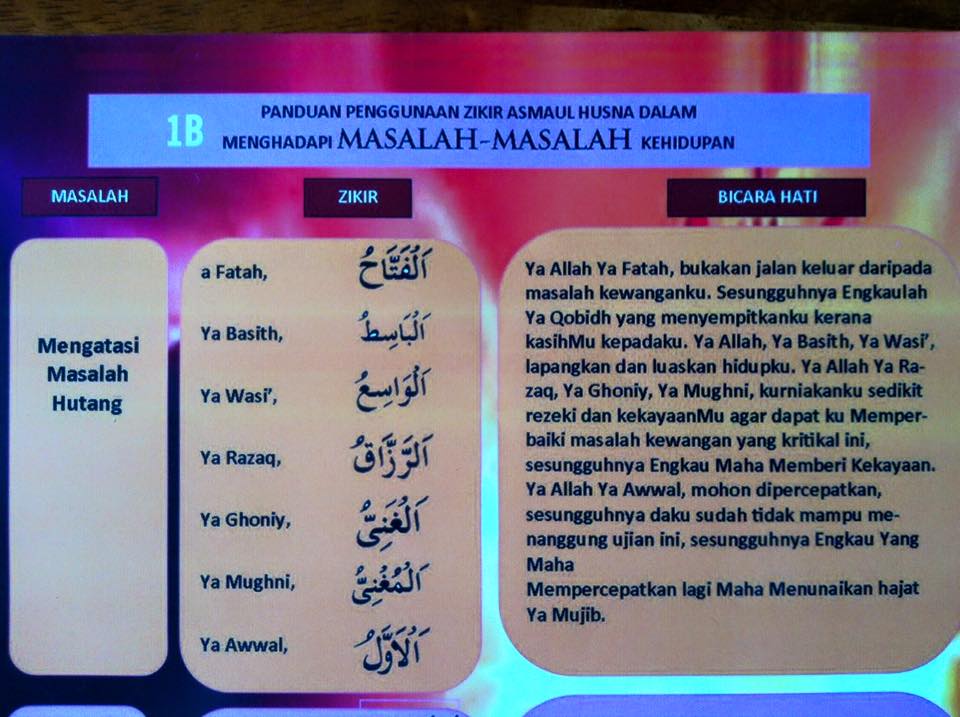 PANDUAN PENGGUNAAN ZIKIR ASMAUL HUSNA DALAM
1B MENGHADAPI MASALAH-MASALAH KEHIDUPAN
MASALAH
ZIKIR
BICARA HATI
Mengatasi
Masalah
Hutang
a Fatah, اَلْفَتَّاحُ
Ya Basith, اَلْبَاسِطُ
Ya Wasi’, اَلْوَاسِعُ
Ya Razaq, اَلرَّزَّاقُ
Ya Ghoniy, اَلْغَنِىُّ
Ya Mughni, اَلْمُغْنِىُّ
Ya Awwal, اَلْاَوَّلُ
Ya Allah Ya Fatah, bukakan jalan keluar daripada
masalah kewanganku. Sesungguhnya Engkaulah
Ya Qobidh yang menyempitkanku kerana
kasihMu kepadaku. Ya Allah, Ya Basith, Ya Wasi’,
lapangkan dan luaskan hidupku. Ya Allah Ya Ra-
zaq, Ya Ghoniy, Ya Mughni, kurniakanku sedikit
rezeki dan kekayaanMu agar dapat ku Memper-
baiki masalah kewangan yang kritikal ini,
sesungguhnya Engkau Maha Memberi Kekayaan.
Ya Allah Ya Awwal, mohon dipercepatkan,
sesungguhnya daku sudah tidak mampu me-
nanggung ujian ini, sesungguhnya Engkau Yang
Maha
Mempercepatkan lagi Maha Menunaikan hajat
Ya Mujib.